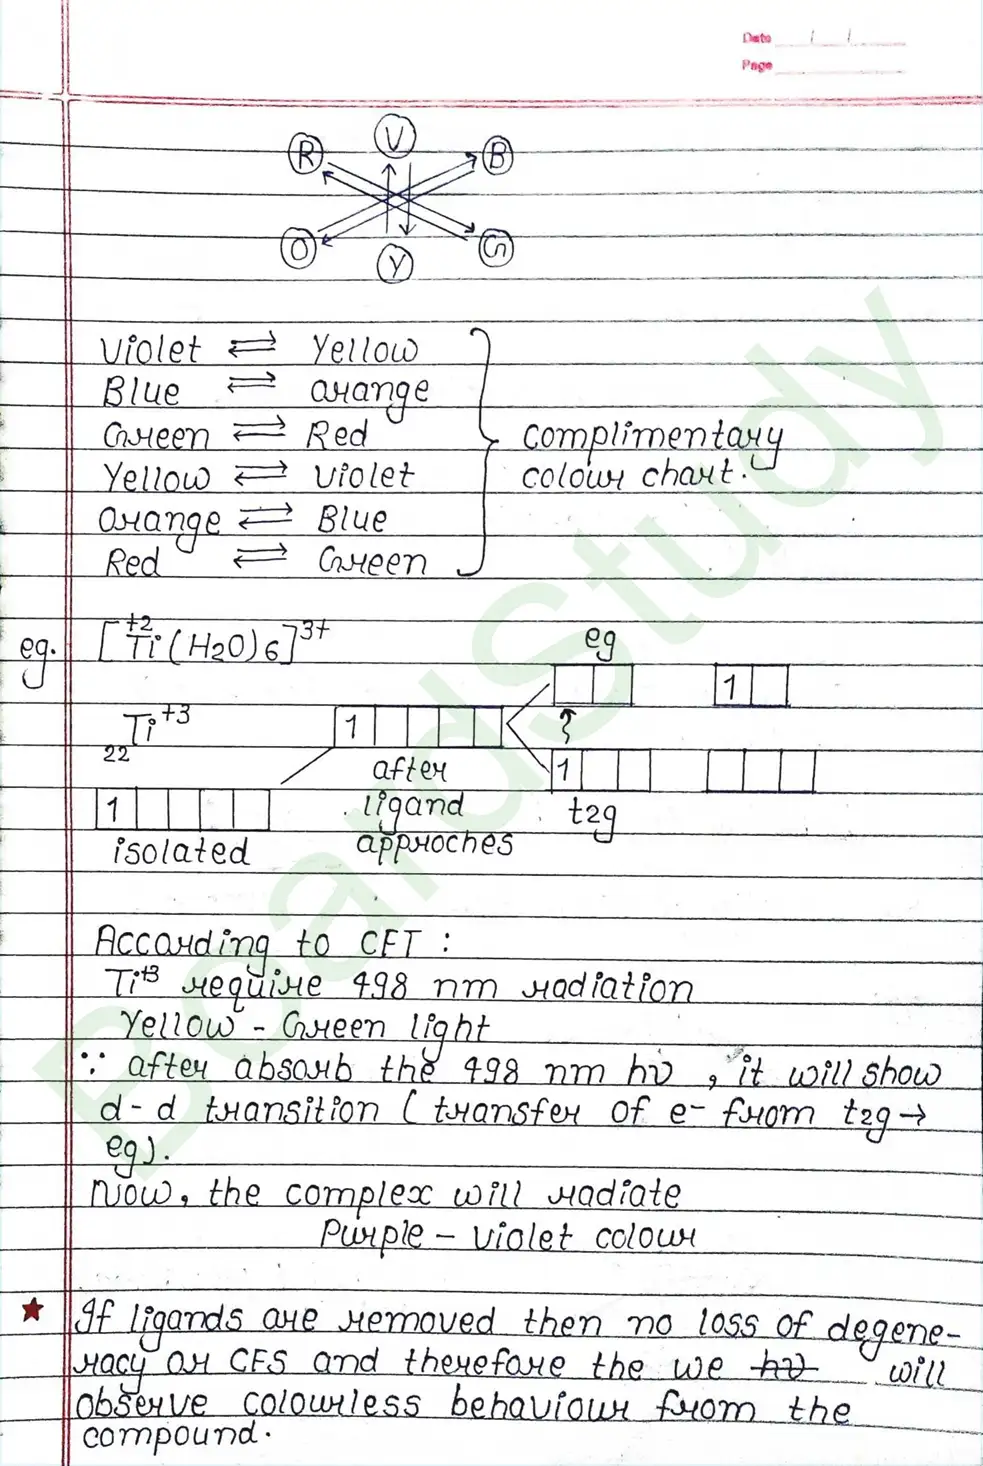 Date
Page
R V B
O Y G
Violet ⇌ Yellow
Blue ⇌ orange
Green ⇌ Red
Yellow ⇌ Violet
orange ⇌ Blue
Red ⇌ Green
complimentary
colour chart.
eg. [Ti(H2O)6]3+
+2
eg
1
22Ti+3
1
1
after
ligand
approches
t2g
1
isolated
According to CFT :
Ti+3 require 498 nm radiation
Yellow - Green light
∵ after absorb the 498 nm hν , it will show
d-d transition ( transfer of e- from t2g →
eg).
Now, the complex will radiate
Purple - violet colour
★ If ligands are removed then no loss of degene-
racy or CFS and therefore the we hν will
observe colourless behaviour from the
compound.
BoardStudy